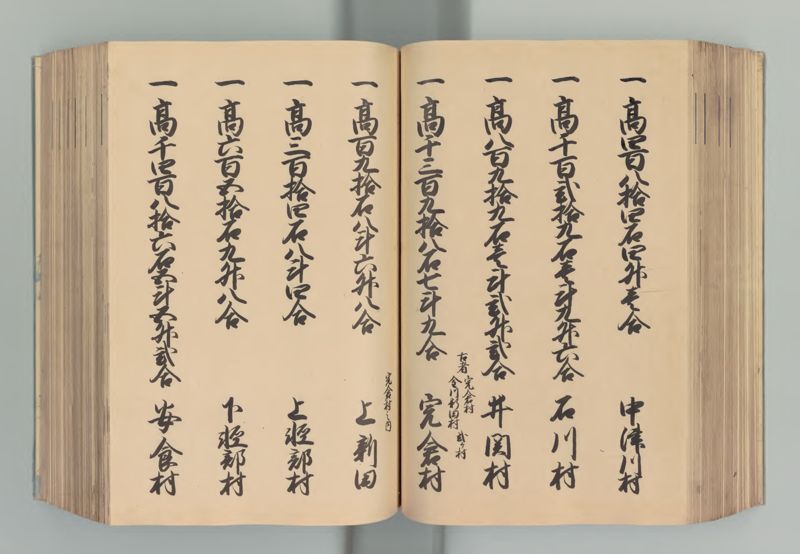 一 高四百八拾四石四升壱合 中津川村
一 高千百弐拾九石壱斗九升六合 石川村
一 高八百九拾九石壱斗弐升弐合 井関村
古者 宍倉村
今川新田村 弐ケ村
一 高千三百九拾八石七斗九合 宍倉村
宍倉村之内
一 高百九拾石八斗六升八合 上新田
一 高三百拾四石八斗四合 上軽部村
一 高六百五拾石九升八合 下軽部村
一 高千四百八拾六石五斗五升弐合 安食村